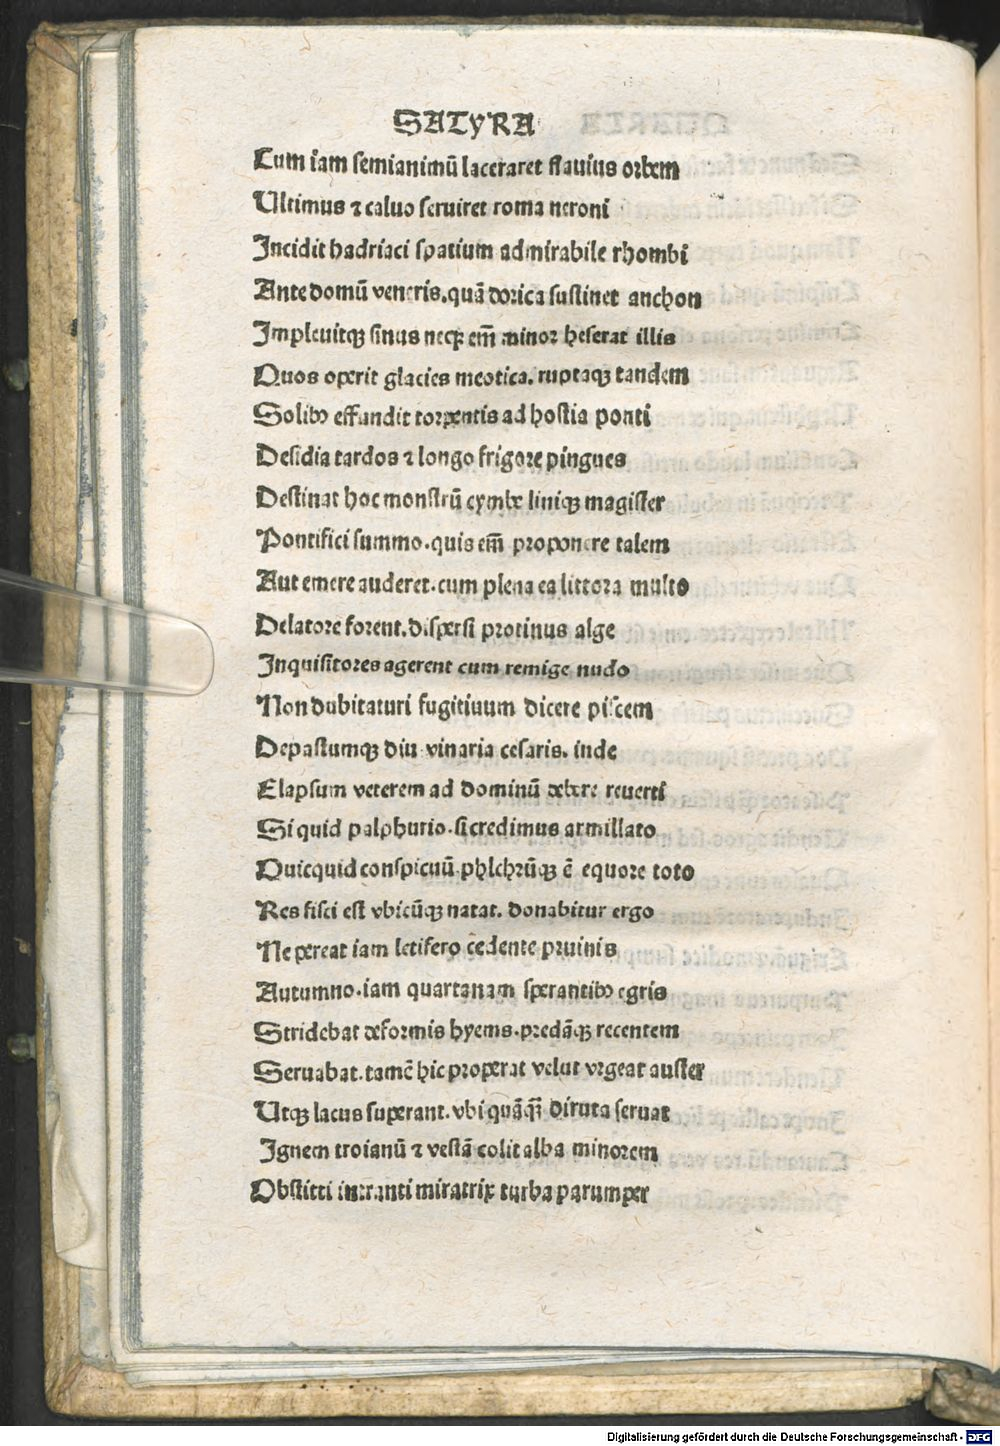 SATYRA
Cum iam semianimū laceraret flauius orbem
Ultimus ⁊ caluo seruiret roma neroni
Incidit hadriaci spatium admirabile rhombi
Ante domū veneris.quā dorica sustinet anchon
Impleuitqꝫ sinus necqꝫ em̄ minor heserat illis
Quos operit glacies meotica. ruptaqꝫ tandem
Solibꝰ effundit torpentis ad hostia ponti
Desidia tardos ⁊ longo frigore pingues
Destinat hoc monstrū cymbe liniqꝫ magister
Pontifici summo.quis em̄ proponere talem
Aut emere auderet.cum plena ea littora multo
Delatore forent.dispersi protinus alge
Inquisitores agerent cum remige nudo
Non dubitaturi fugitiuum dicere piscem
Depastumqꝫ diu vinaria cesaris. inde
Elapsum veterem ad dominū debere reuerti
Si quid palphurio.si credimus armillato
Quicquid conspicuū.phlchrūqꝫ ē equore toto
Res fisci est vbicūqꝫ natat. donabitur ergo
Ne pereat iam letifero cedente pruinis
Autumno.iam quartanam sperantibꝰ egris
Stridebat deformis hyems.predāqꝫ recentem
Seruabat.tamē hic properat velut vrgeat auster
Utqꝫ lacus superant.vbi quāqꝫ̄ diruta seruat
Ignem troianū ⁊ vestā colit alba minorem
Obstitti intranti miratrix turba parumper
Digitalisierung gefördert durch die Deutsche Forschungsgemeinschaft - DFG